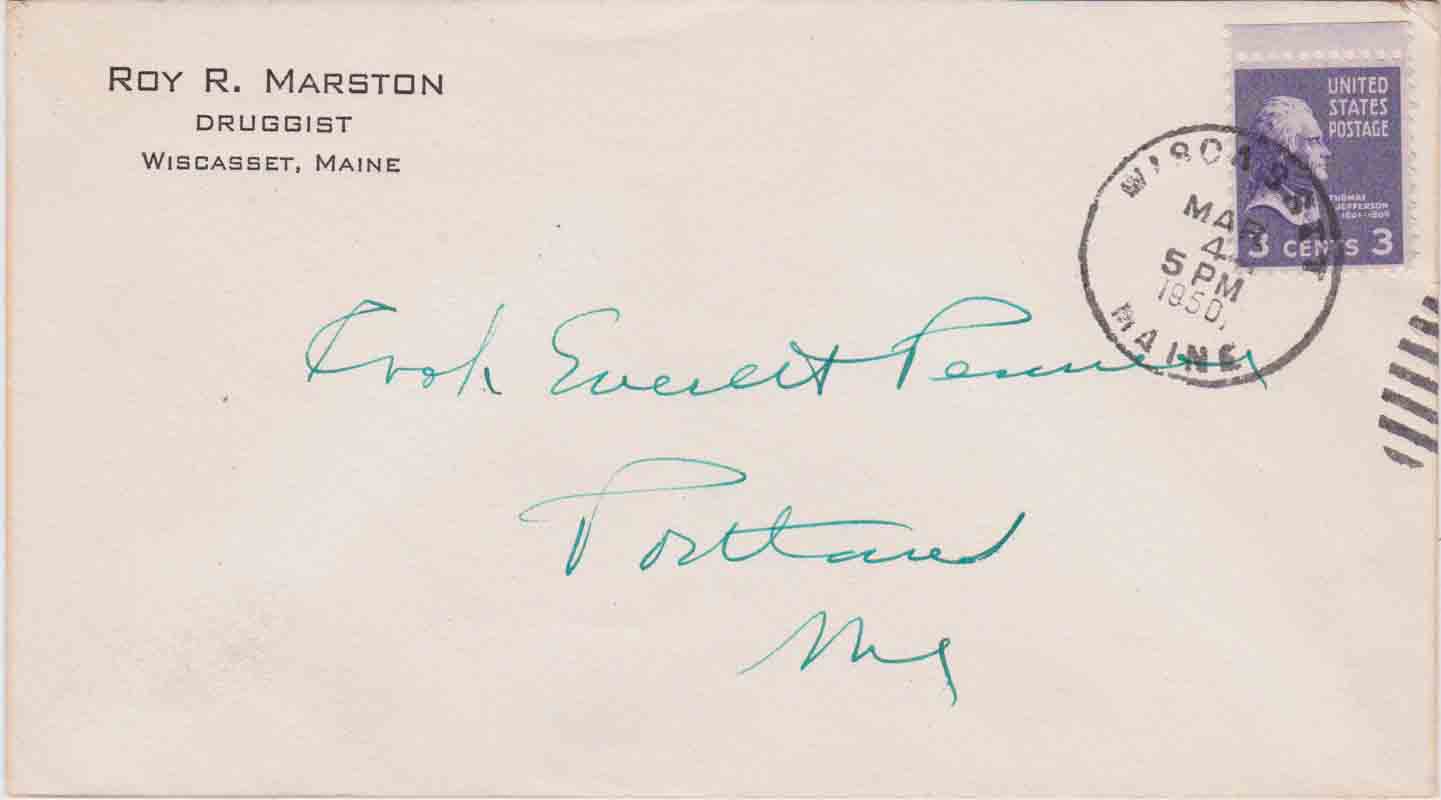 ROY R. MARSTON
DRUGGIST
WISCASSET, MAINE
UNITED
STATES
POSTAGE
THOMAS
JEFFERSON
1801-1809
3 CENTS 3
WISCASSET
MAR
4
5 PM
1950
MAINE
Cook Everett Pennell
Portland
Me